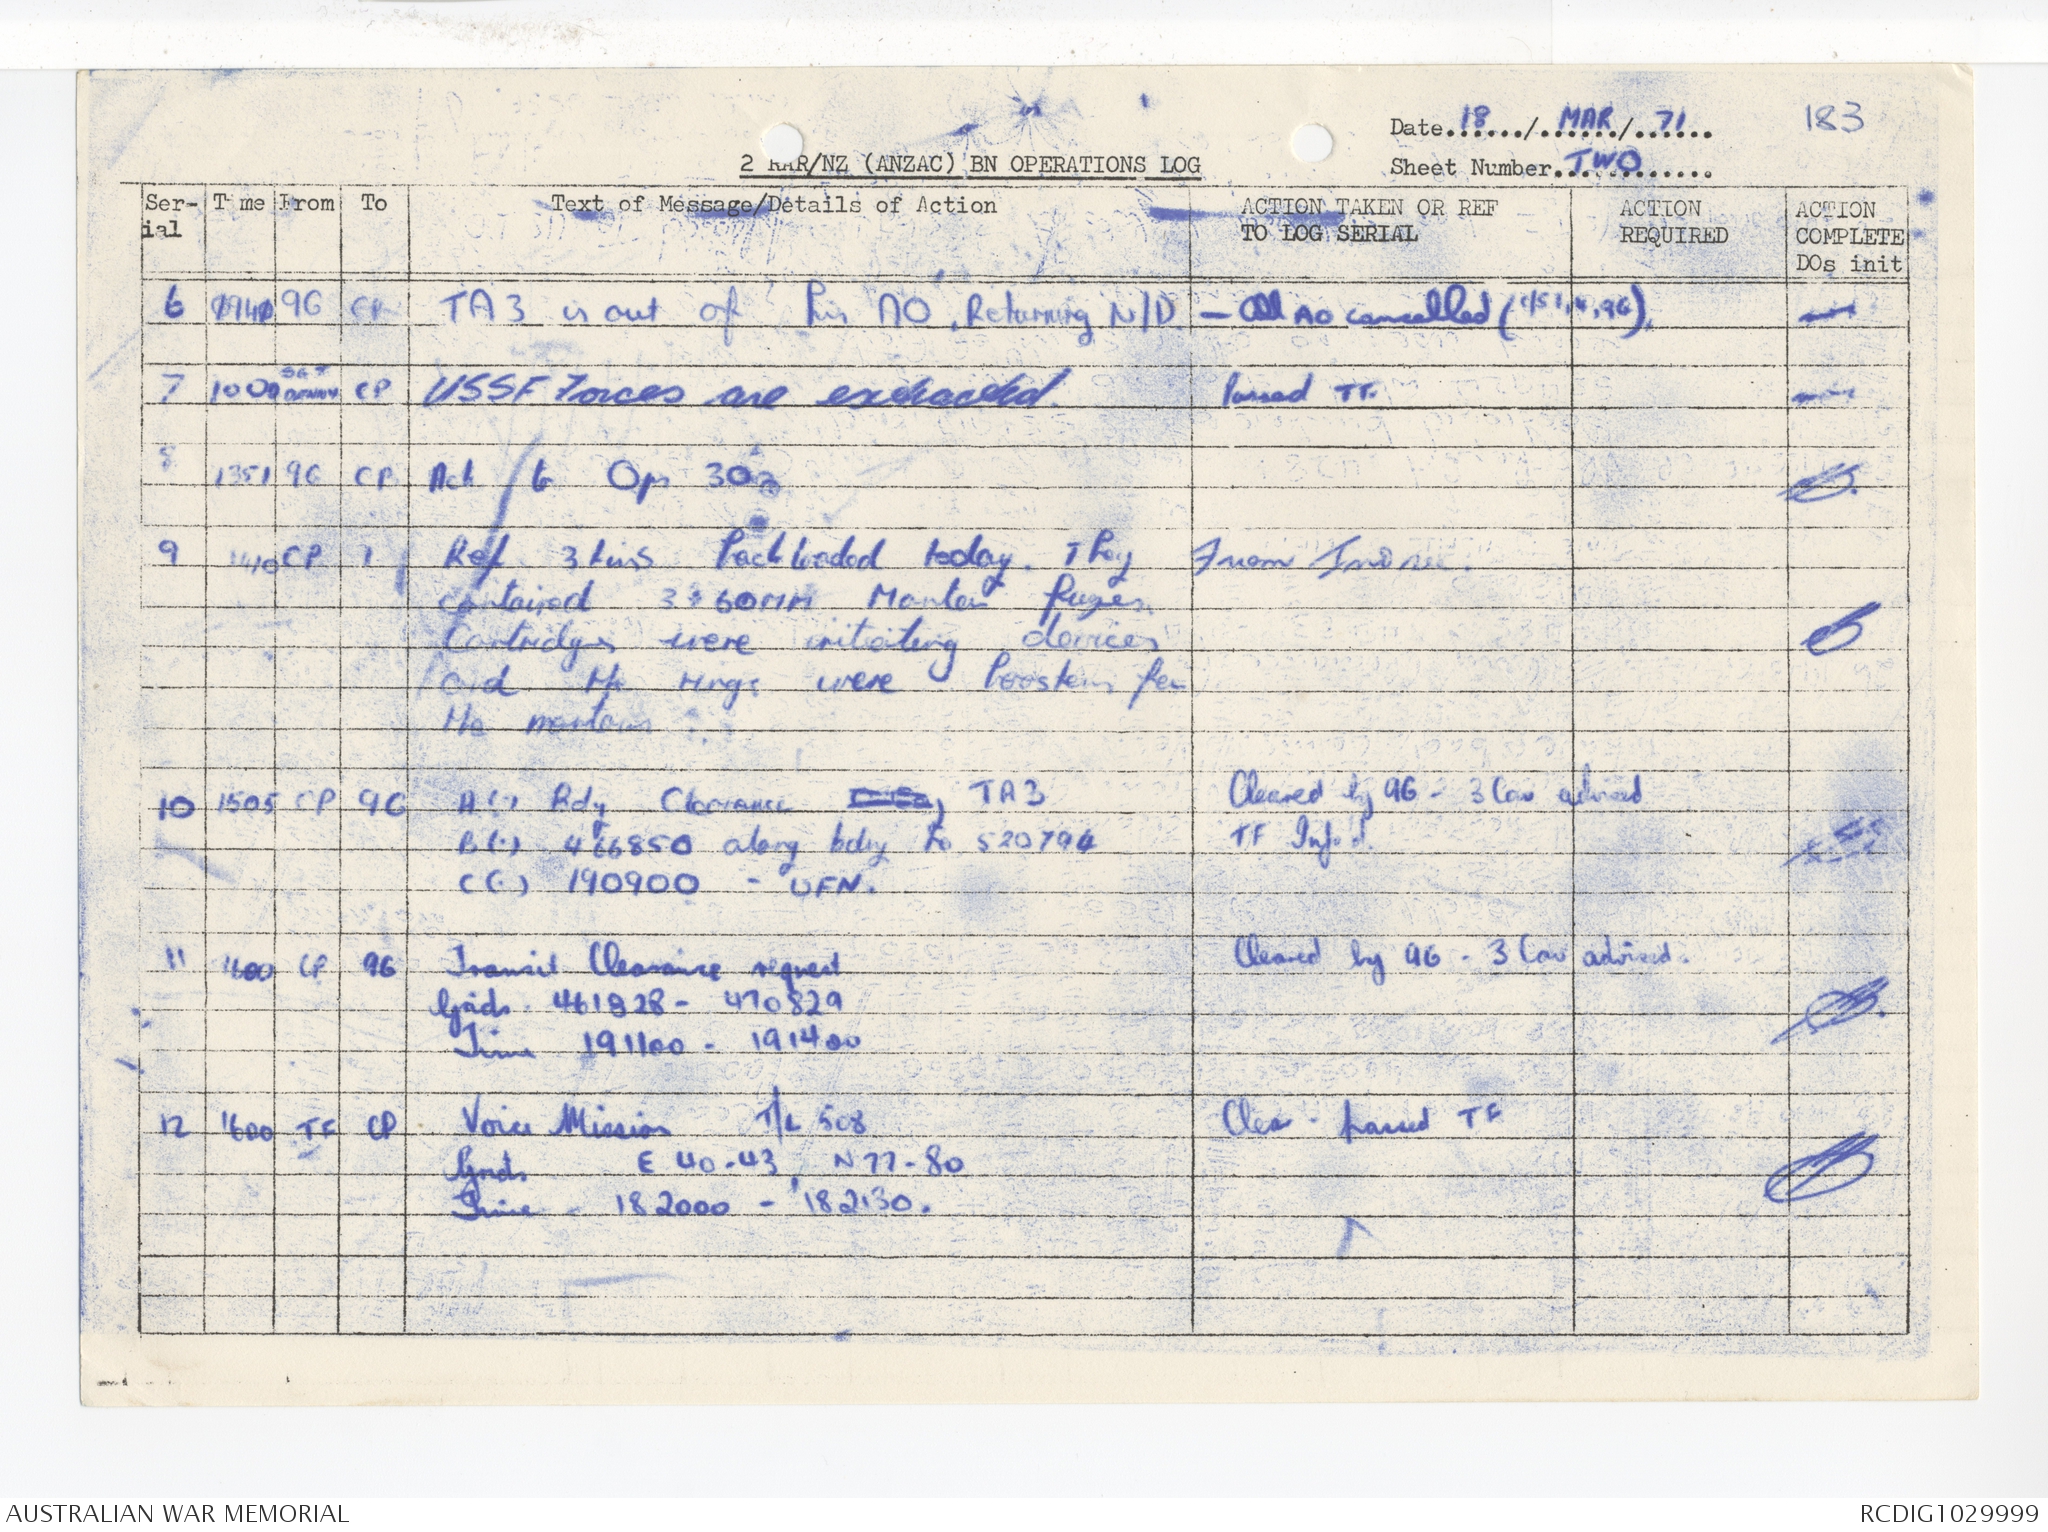 183
Date 18 / MAR / 71
2 RAR/NZ (ANZAC) BN OPERATIONS LOG
Sheet Number TWO
Ser-ial Time From To Text of Message/Details of Action ACTION TAKEN OR REF TO LOG SERIAL ACTION REQUIRED ACTION COMPLETE DOs init
6 0940 96 CP TA3 is out of his AO. Returning N/D. - All AO cancelled (1/51, 4, 96).
7 1000 SGT CP USSF Forces are extracted. Passed TF.
8 1351 96 CP Ack to Ops 303
9 1410 CP 1 Ref 3 tins Backloaded today. They From Int Sec.
contained 3 x 60MM Mortar fuzes.
Cartridges were initiating devices
and the rings were boosters for
the mortars
10 1505 CP 96 A(.) Rdy Clearance TA3 Cleared by 96 - 3 Cav advised
B(.) 466850 along bdry to 520794 TF Inf'd.
C(.) 190900 - UFN.
11 1600 CP 96 Transit Clearance request Cleared by 96 - 3 Cav advised.
Grids 461828 - 470829
Time 191100 - 191400
12 1600 TF CP Voice Mission T/L 508 Clear - passed TF
Grids E 40-43 N 77-80
Time - 182000 - 182130.
AUSTRALIAN WAR MEMORIAL
RCDIG1029999